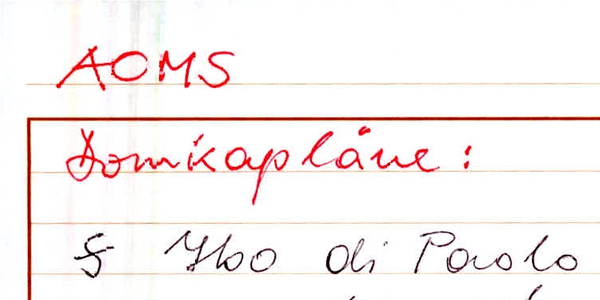 AOMS
Domkapläne:
§ Ybo di Paolo